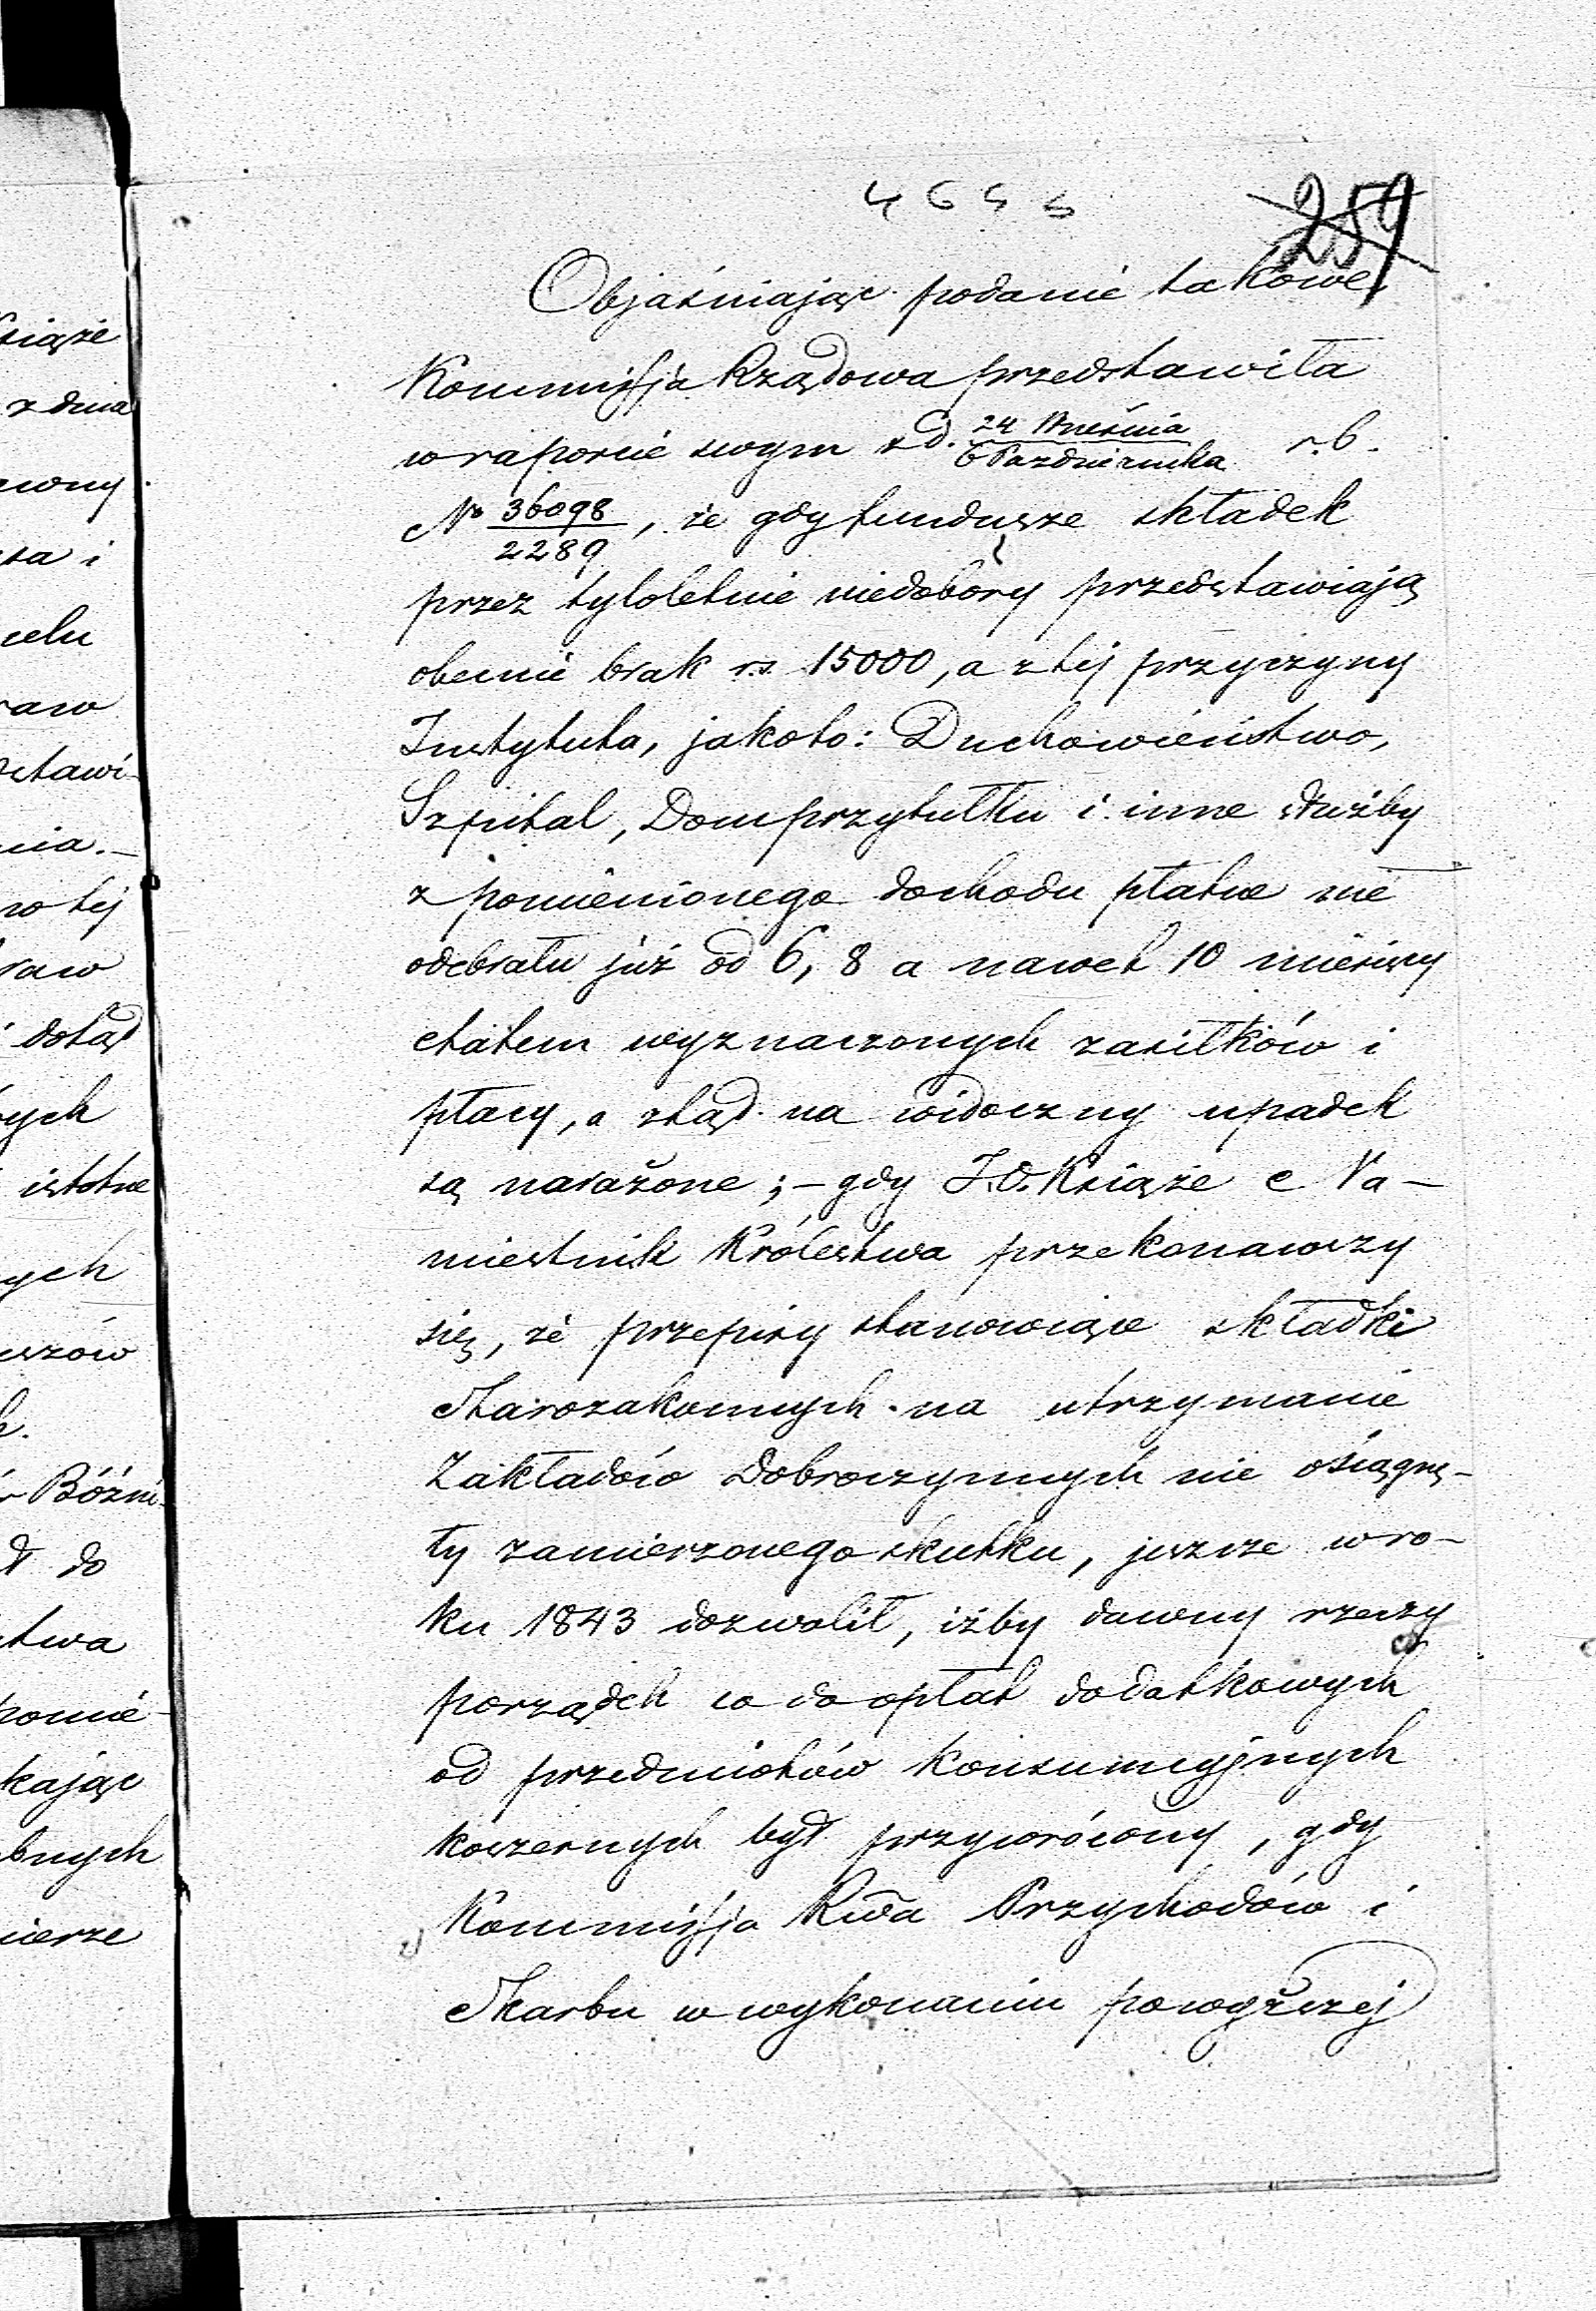 4655
259
Objaśniając podanie takowe
Kommissja Rządowa przedstawiła
w raporcie swym z d. 24 Września / 6 Października r.b.
№ 36098/2289, że gdy fundusze składek
przez tyloletnie niedobory przedstawiają
obecnie brak rs. 15000, a z tej przyczyny
Instytuta, jakoto: Duchowieństwo,
Szpital, Dom przytułku i inne służby
z pomienionego dochodu płatne nie
odebrały już od 6, 8 a nawet 10 miesięcy
etatem wyznaczonych zasiłków i
płacy, a ztąd na widoczny upadek
są narażone; – gdy J.O. Książe Na-
miestnik Królestwa przekonawszy
się, że przepisy stanowiące składki
Starozakonnych na utrzymanie
Zakładów Dobroczynnych nie osiągnę-
ły zamierzonego skutku, jeszcze w ro-
ku 1843 dozwolił, iżby dawny rzeczy
porządek co do opłat dodatkowych
od przedmiotów konsumcyjnych
koszernych był przywrócony, gdy
Kommissja Rwa Przychodów i
Skarbu w wykonaniu powyższej